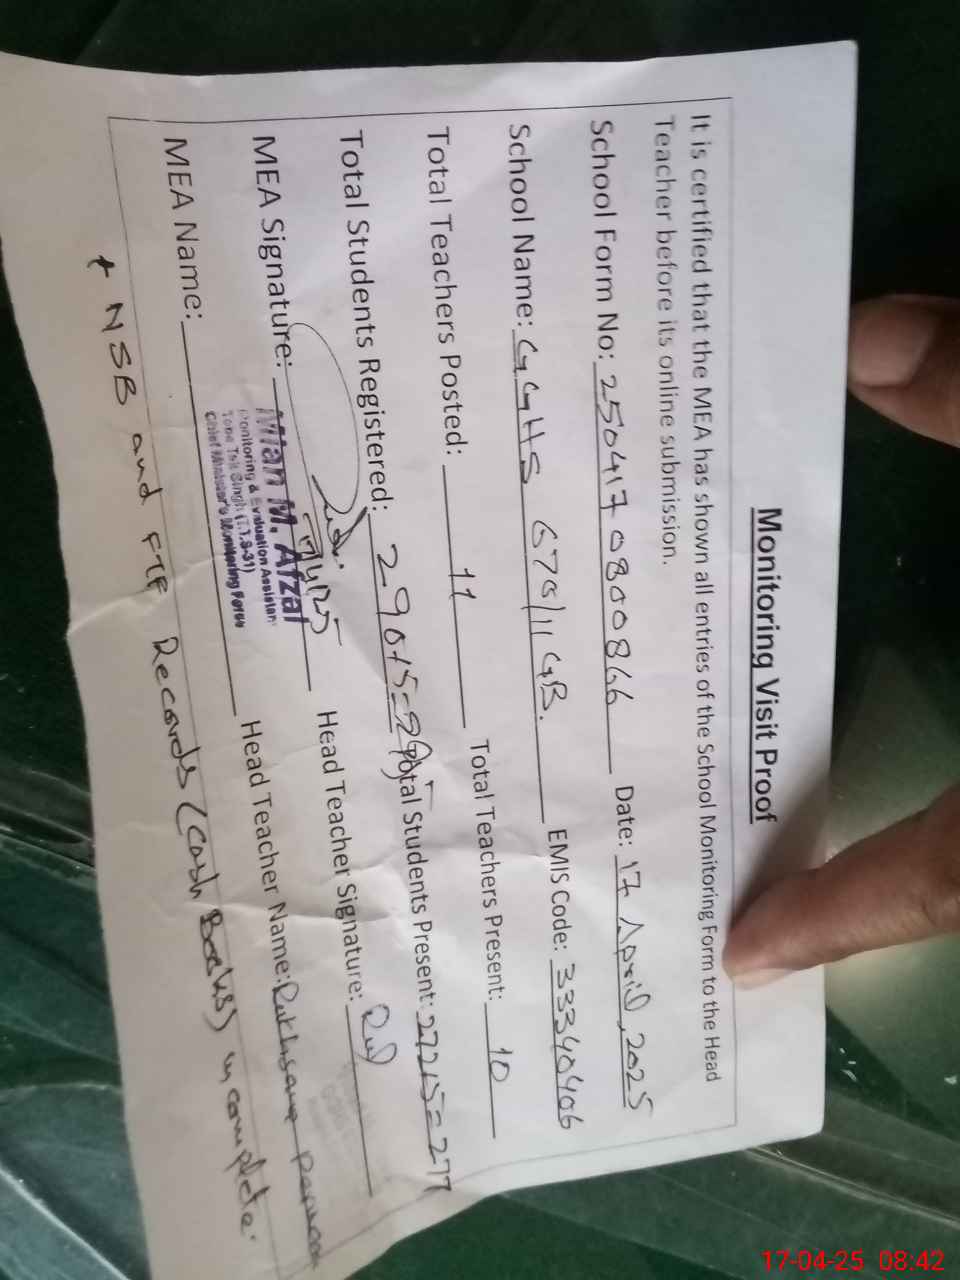 Monitoring Visit Proof
It is certified that the MEA has shown all entries of the School Monitoring Form to the Head
Teacher before its online submission.
School Form No: 2504170800866 Date: 17 April, 2025
School Name: GGHS 679/11 GB. EMIS Code: 33340406
Total Teachers Posted: 11 Total Teachers Present: 10
Total Students Registered: 290+5=295 Total Students Present: 272+5=277
MEA Signature: Head Teacher Signature:
Mian M. Afzal
Monitoring & Evaluation Assistant
Toba Tek Singh (T.T.S-31)
Chief Minister's Monitoring Force
MEA Name: Head Teacher Name: Rukhsana Parveen
+ NSB and FTF Records (Cash Books) incomplete.
17-04-25 08:42